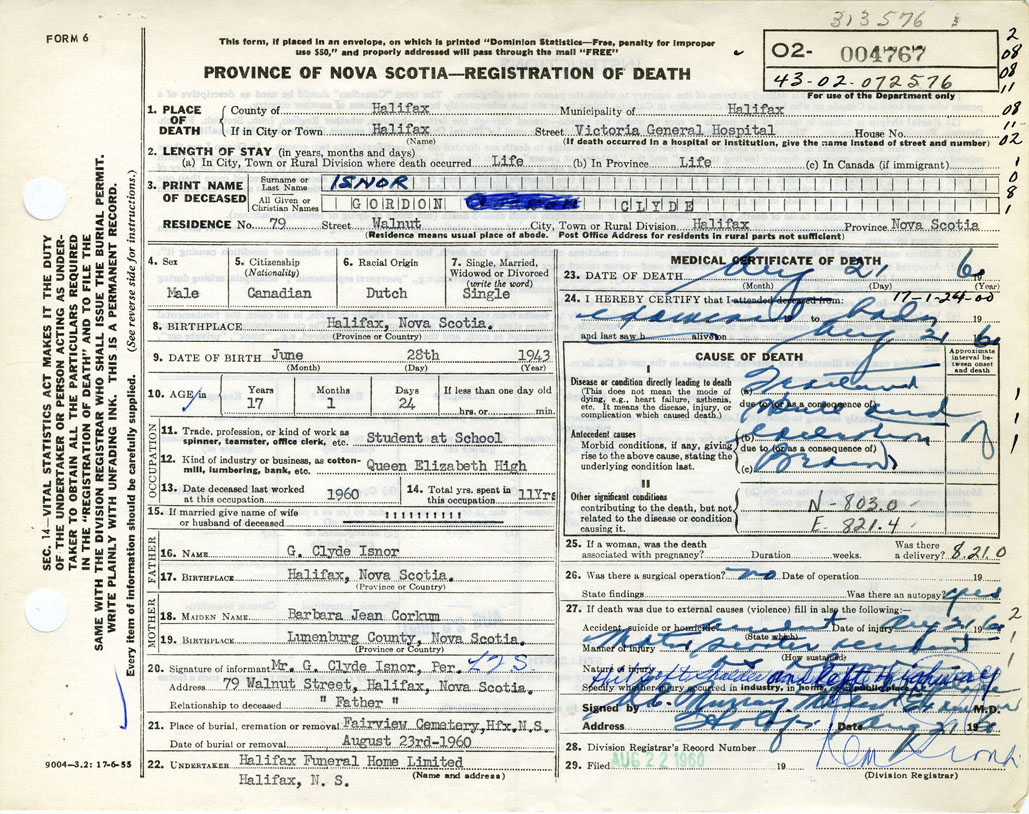 313576
FORM 6
This form, if placed in an envelope, on which is printed "Dominion Statistics—Free, penalty for improper
use $50," and properly addressed will pass through the mail "FREE"
02- 004767
43-02-072576
For use of the Department only
PROVINCE OF NOVA SCOTIA—REGISTRATION OF DEATH
2
08
08
11
08
11
02
1
0
8
1
1. PLACE OF DEATH
County of Halifax Municipality of Halifax
If in City or Town Halifax Street Victoria General Hospital House No.
(Name) (If death occurred in a hospital or institution, give the name instead of street and number)
2. LENGTH OF STAY (in years, months and days)
(a) In City, Town or Rural Division where death occurred Life (b) In Province Life (c) In Canada (if immigrant)
3. PRINT NAME OF DECEASED
Surname or Last Name ISNOR
All Given or Christian Names GORDON CLYDE
RESIDENCE No. 79 Street Walnut City, Town or Rural Division Halifax Province Nova Scotia
(Residence means usual place of abode. Post Office Address for residents in rural parts not sufficient)
4. Sex
Male
5. Citizenship
(Nationality)
Canadian
6. Racial Origin
Dutch
7. Single, Married,
Widowed or Divorced
(write the word)
Single
8. BIRTHPLACE Halifax, Nova Scotia.
(Province or Country)
9. DATE OF BIRTH June 28th 1943
(Month) (Day) (Year)
10. AGE in
Years Months Days If less than one day old
17 1 24 hrs. or min.
OCCUPATION
11. Trade, profession, or kind of work as
spinner, teamster, office clerk, etc. Student at School
12. Kind of industry or business, as cotton-
mill, lumbering, bank, etc. Queen Elizabeth High
13. Date deceased last worked
at this occupation 1960
14. Total yrs. spent in
this occupation 11Yrs
15. If married give name of wife
or husband of deceased
FATHER
16. NAME G. Clyde Isnor
17. BIRTHPLACE Halifax, Nova Scotia.
(Province or Country)
MOTHER
18. MAIDEN NAME Barbara Jean Corkum
19. BIRTHPLACE Lunenburg County, Nova Scotia.
(Province or Country)
20. Signature of informant Mr. G. Clyde Isnor, Per.
Address 79 Walnut Street, Halifax, Nova Scotia.
Relationship to deceased " Father "
21. Place of burial, cremation or removal Fairview Cemetery,Hfx.N.S.
Date of burial or removal August 23rd-1960
22. UNDERTAKER Halifax Funeral Home Limited
Halifax, N. S. (Name and address)
MEDICAL CERTIFICATE OF DEATH
23. DATE OF DEATH Aug 21 60
(Month) (Day) (Year)
24. I HEREBY CERTIFY that I attended deceased from: 17-1-24-00
examined to body 19
and last saw h alive on Aug 21 60
CAUSE OF DEATH
Approximate
interval be-
tween onset
and death
I
Disease or condition directly leading to death
(This does not mean the mode of
dying, e.g., heart failure, asthenia,
etc. It means the disease, injury, or
complication which caused death.)
(a) Fractured
due to (or as a consequence of)
Antecedent causes
Morbid conditions, if any, giving
rise to the above cause, stating the
underlying condition last.
(b) laceration of
due to (or as a consequence of)
(c) Brain
II
Other significant conditions
contributing to the death, but not
related to the disease or condition
causing it.
N-803.0
E. 821.4
1
1
1
25. If a woman, was the death
associated with pregnancy? Duration weeks.
Was there
a delivery? 8.21.0
26. Was there a surgical operation? no Date of operation 19
State findings Was there an autopsy? yes
27. If death was due to external causes (violence) fill in also the following:—
Accident, suicide or homicide accident Date of injury Aug 21 60
(State which)
Manner of injury Motor scooter accident
(How sustained)
Nature of injury
Specify whether injury occurred in industry, in home, or in public place
Signed by M.D.
Address Date Aug 19
28. Division Registrar's Record Number
29. Filed AUG 22 1960 19
(Division Registrar)
2
1
1
SEC. 14—VITAL STATISTICS ACT MAKES IT THE DUTY
OF THE UNDERTAKER OR PERSON ACTING AS UNDER-
TAKER TO OBTAIN ALL THE PARTICULARS REQUIRED
IN THE "REGISTRATION OF DEATH" AND TO FILE THE
SAME WITH THE DIVISION REGISTRAR WHO SHALL ISSUE THE BURIAL PERMIT.
WRITE PLAINLY WITH UNFADING INK. THIS IS A PERMANENT RECORD.
Every item of information should be carefully supplied. (See reverse side for instructions.)
9004—3.2: 17-6-55